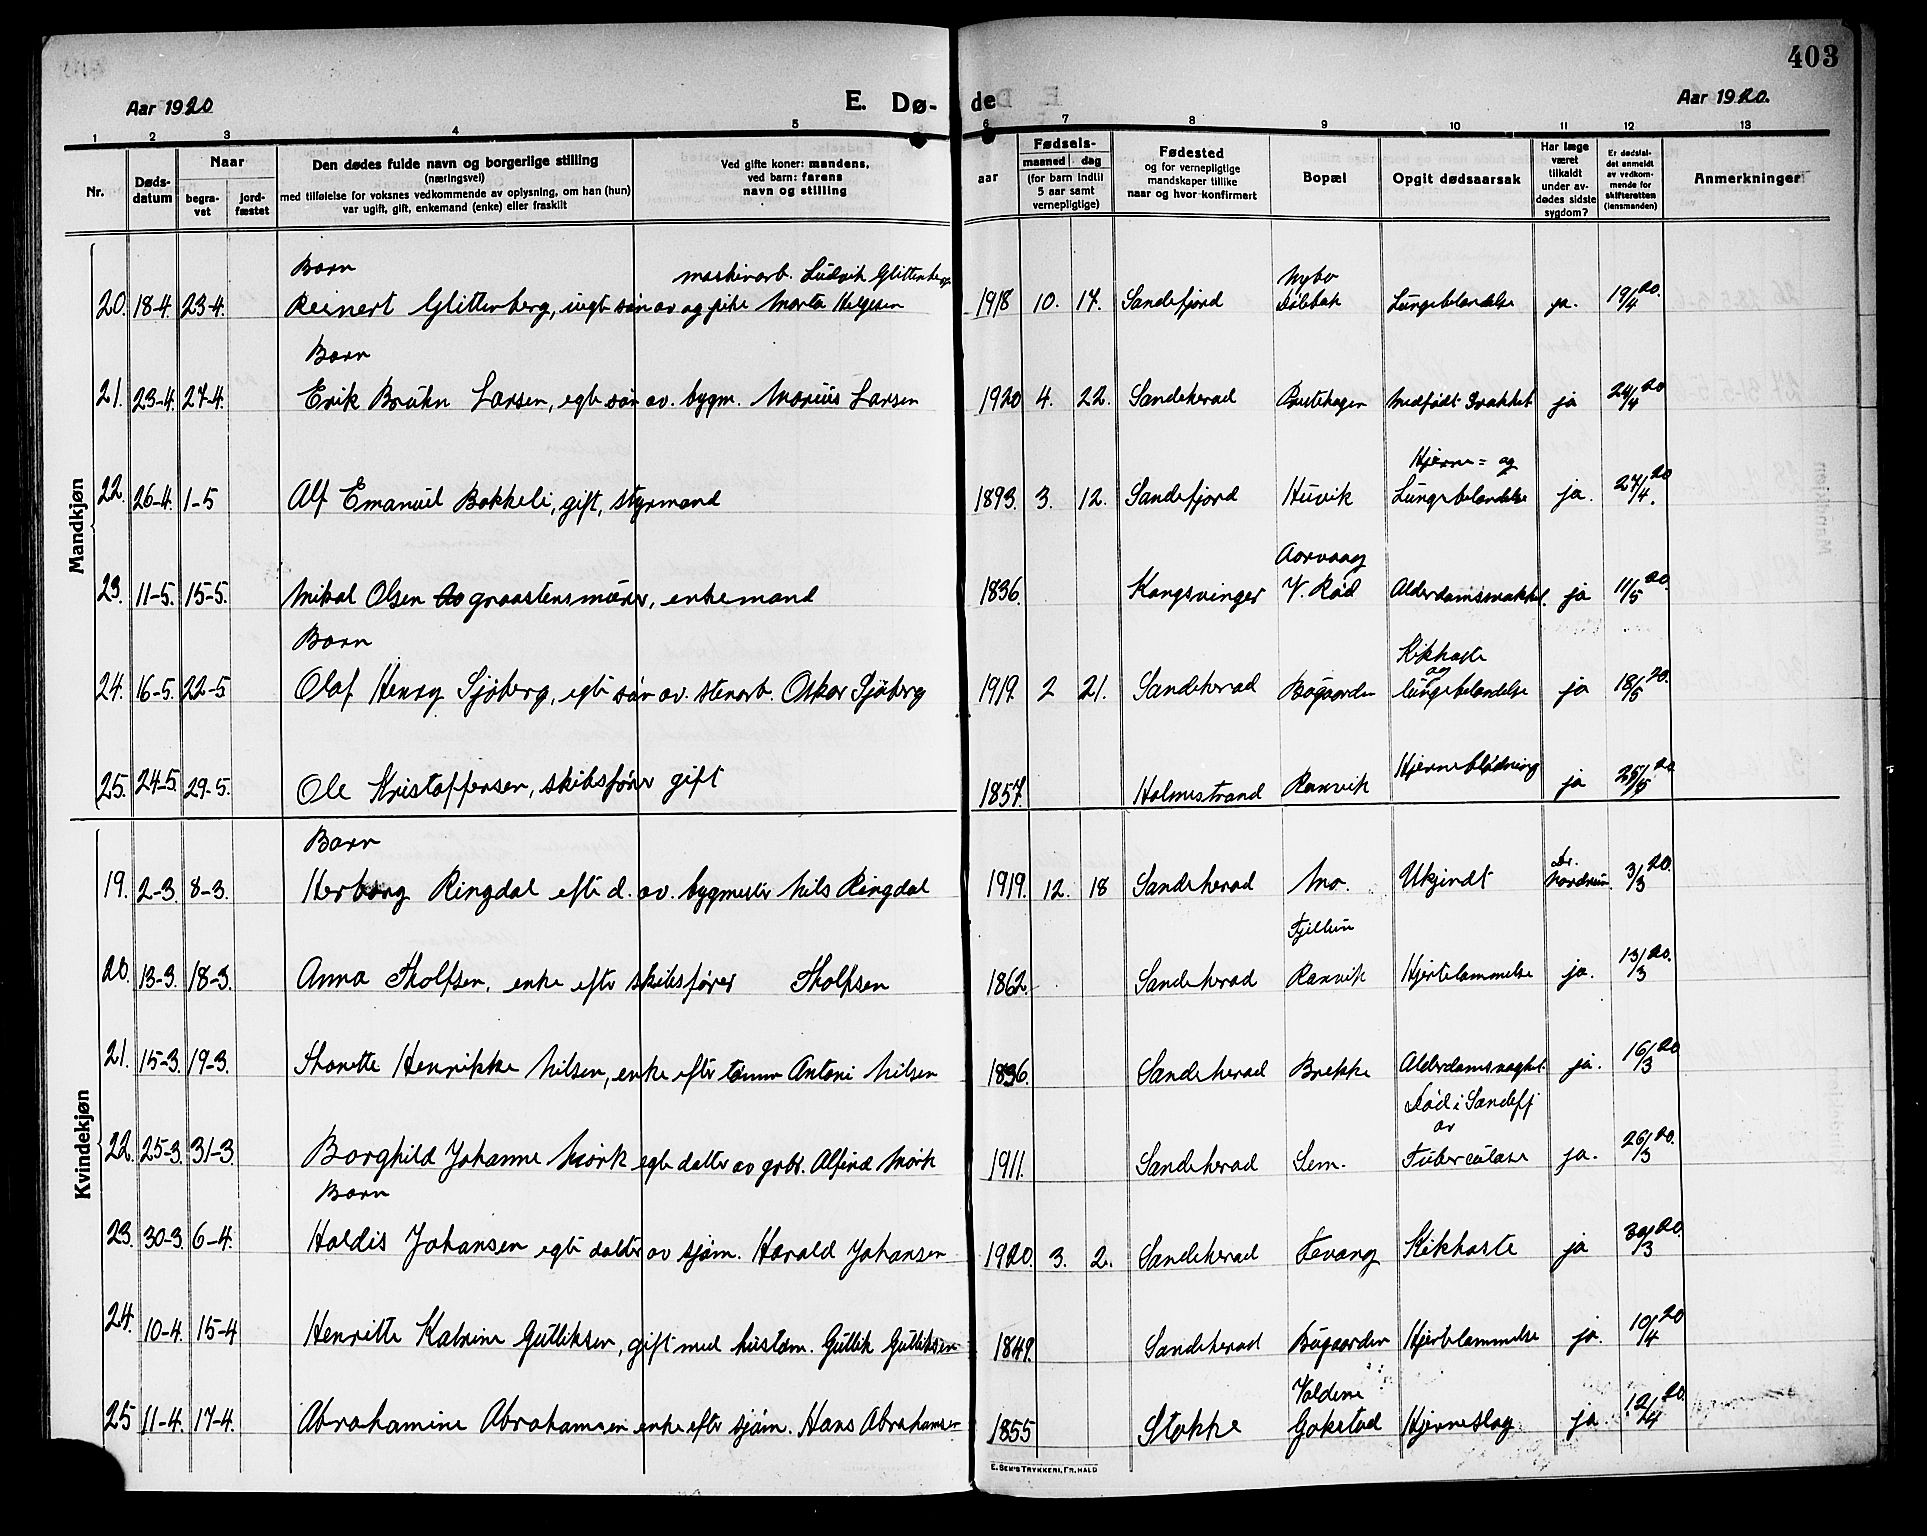 403
Aar 1920
E. Dø-
de
Aar 1920.
1 2 3 4 5 6 7 8 9 10 11 12 13
Nr.
Døds-
datum
Naar
begra-
vet
jord-
fæstet
Den dødes fulde navn og borgerlige stilling
(næringsvei)
med tilføielse for voksnes vedkommende av oplysning, om han (hun)
var ugift, gift, enkemand (enke) eller fraskilt
Ved gifte koner: mandens,
ved barn: farens
navn og stilling
Fødsels-
aar
maaned dag
(for barn indtil
5 aar samt
vernepligtige)
Fødested
og for vernepligtige
mandskaper tillike
naar og hvor konfirmert
Bopæl
Opgit dødsaarsak
Har læge
været
tilkaldt
under av-
dødes sidste
sygdom?
Er dødsfal-
det anmeldt
av vedkom-
mende for
skifteretten
(lensmanden)
Anmerkninger
Mandkjøn
Barn maskinarb. Ludvik Glittenberg Nybo
20. 18-4. 23-4. Reinert Glittenberg, uegte søn av og pike Marta Helgesen 1918 10. 17. Sandefjord Lungebetændelse ja. 19/4 20.
Barn
21. 23-4. 27-4. Erik Bruhn Larsen, egte søn av. bygm. Marius Larsen 1920 4. 22. Sandeherad Medfødt svakhet ja 24/4 20
Hjerne= og
22. 26-4. 1-5 Alf Emanuel Bakkeli, gift, styrmand 1893. 3. 12. Sandefjord Huvik Lungebetændelse ja. 27/4. 20
Aarvaag
23. 11-5. 15-5. Mikal Olsen graastensmurer, enkemand 1836. Kongsvinger V. Rød Alderdomssvakhet. ja 11/5 20.
Barn Kikhoste
og
24. 16-5. 22-5 Olaf Henry Sjøberg, egte søn av. stenarb. Oskar Sjøberg 1919. 2 21. Sandeherad Bøgaarden lungebetændelse ja 18/5 20.
25. 24-5. 29-5. Ole Kristoffersen, skibsfører gift 1857. Holmestrand Ranvik Hjerneblødning ja 25/5 20
Kvindekjøn
Barn Dr.
19. 2-3. 8-3. Herborg Ringdal efte d. av. bygmester Nils Ringdal 1919. 12. 18 Sandeherad Mo. Ukjendt Nordrum 3/3 20.
Fjellum
20. 13-3. 18-3. Anna Tholfsen, enke efter skibsfører Tholfsen 1862. Sandeherad Ranvik Hjertelammelse ja. 13/3 20.
21. 15-3. 19-3. Thonette Henrikke Nilsen, enke efter tømm Antoni Nilsen 1836. Sandeherad Brekke Alderdomsvaghet. ja. 16/3 20
Død i Sandefj
av
22. 25-3. 31-3. Borghild Johanne Mørk egte datter av grbr. Alfred Mørk 1911. Sandeherad Sem. Tuberculose ja. 26/3 20.
Barn
23. 30-3. 6-4. Haldis Johansen egte datter av sjøm. Harald Johansen 1920. 3. 2. Sandeherad Fevang Kikhoste ja 30/3 20.
24. 10-4. 15-4 Henritte Katrine Gulliksen, gift med hustøm. Gullik Gulliksen 1849. Sandeherad Bugaarden Hjertelammelse ja. 10/4 20
Valdene
25 11-4. 17-4. Abrahamine Abrahamsen enke efter sjøm. Hans Abrahamsen 1855 Stokke Gokstad Hjerneslag ja 12/4 20.
E. SEM'S TRYKKERI, FR. HALD